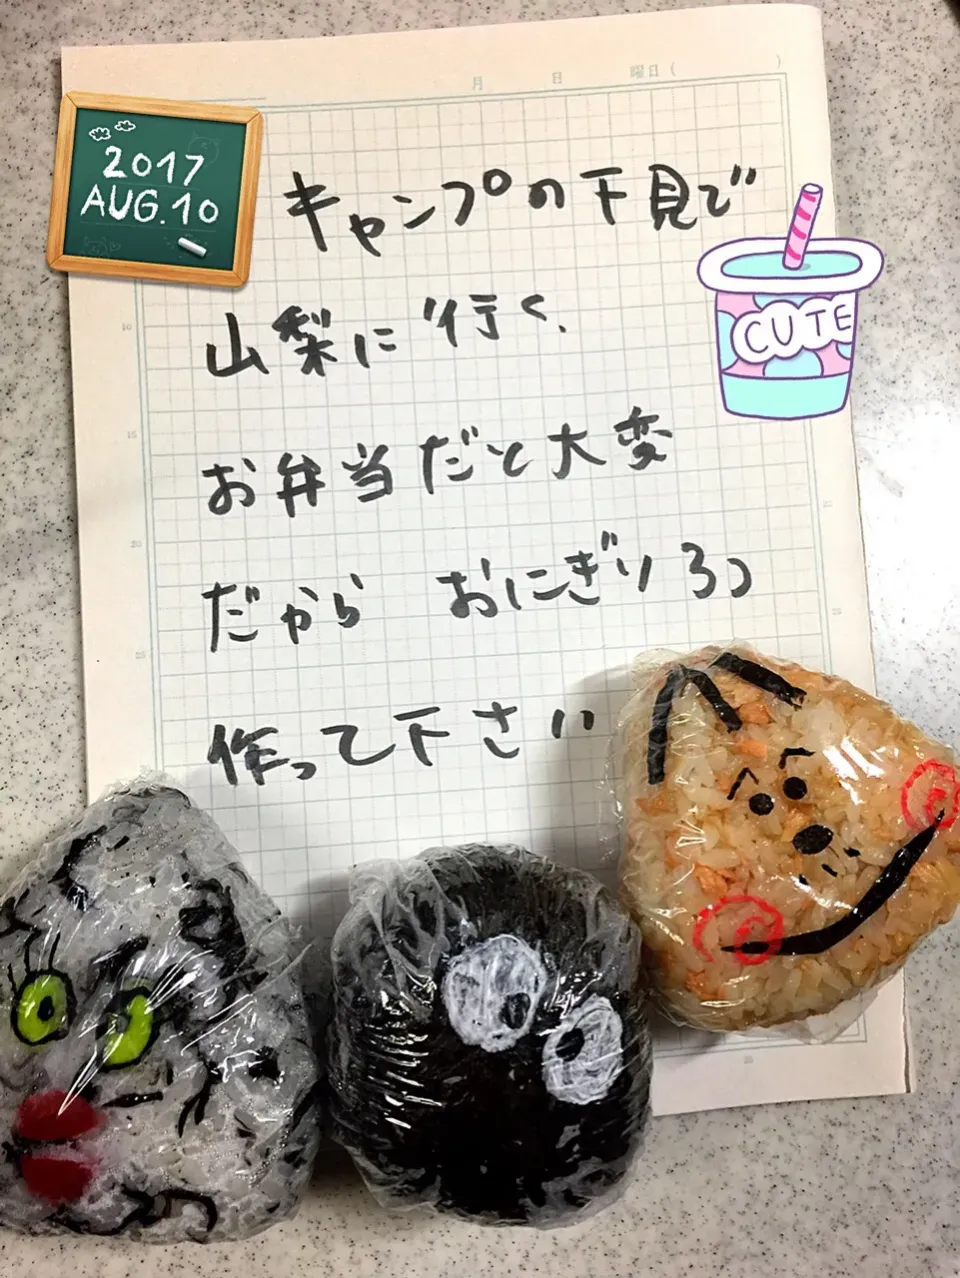 月 日 曜日( )
2017
AUG.10
キャンプの下見で
山梨に行く、
CUTE
お弁当だと大変
だから おにぎり3つ
作って下さい